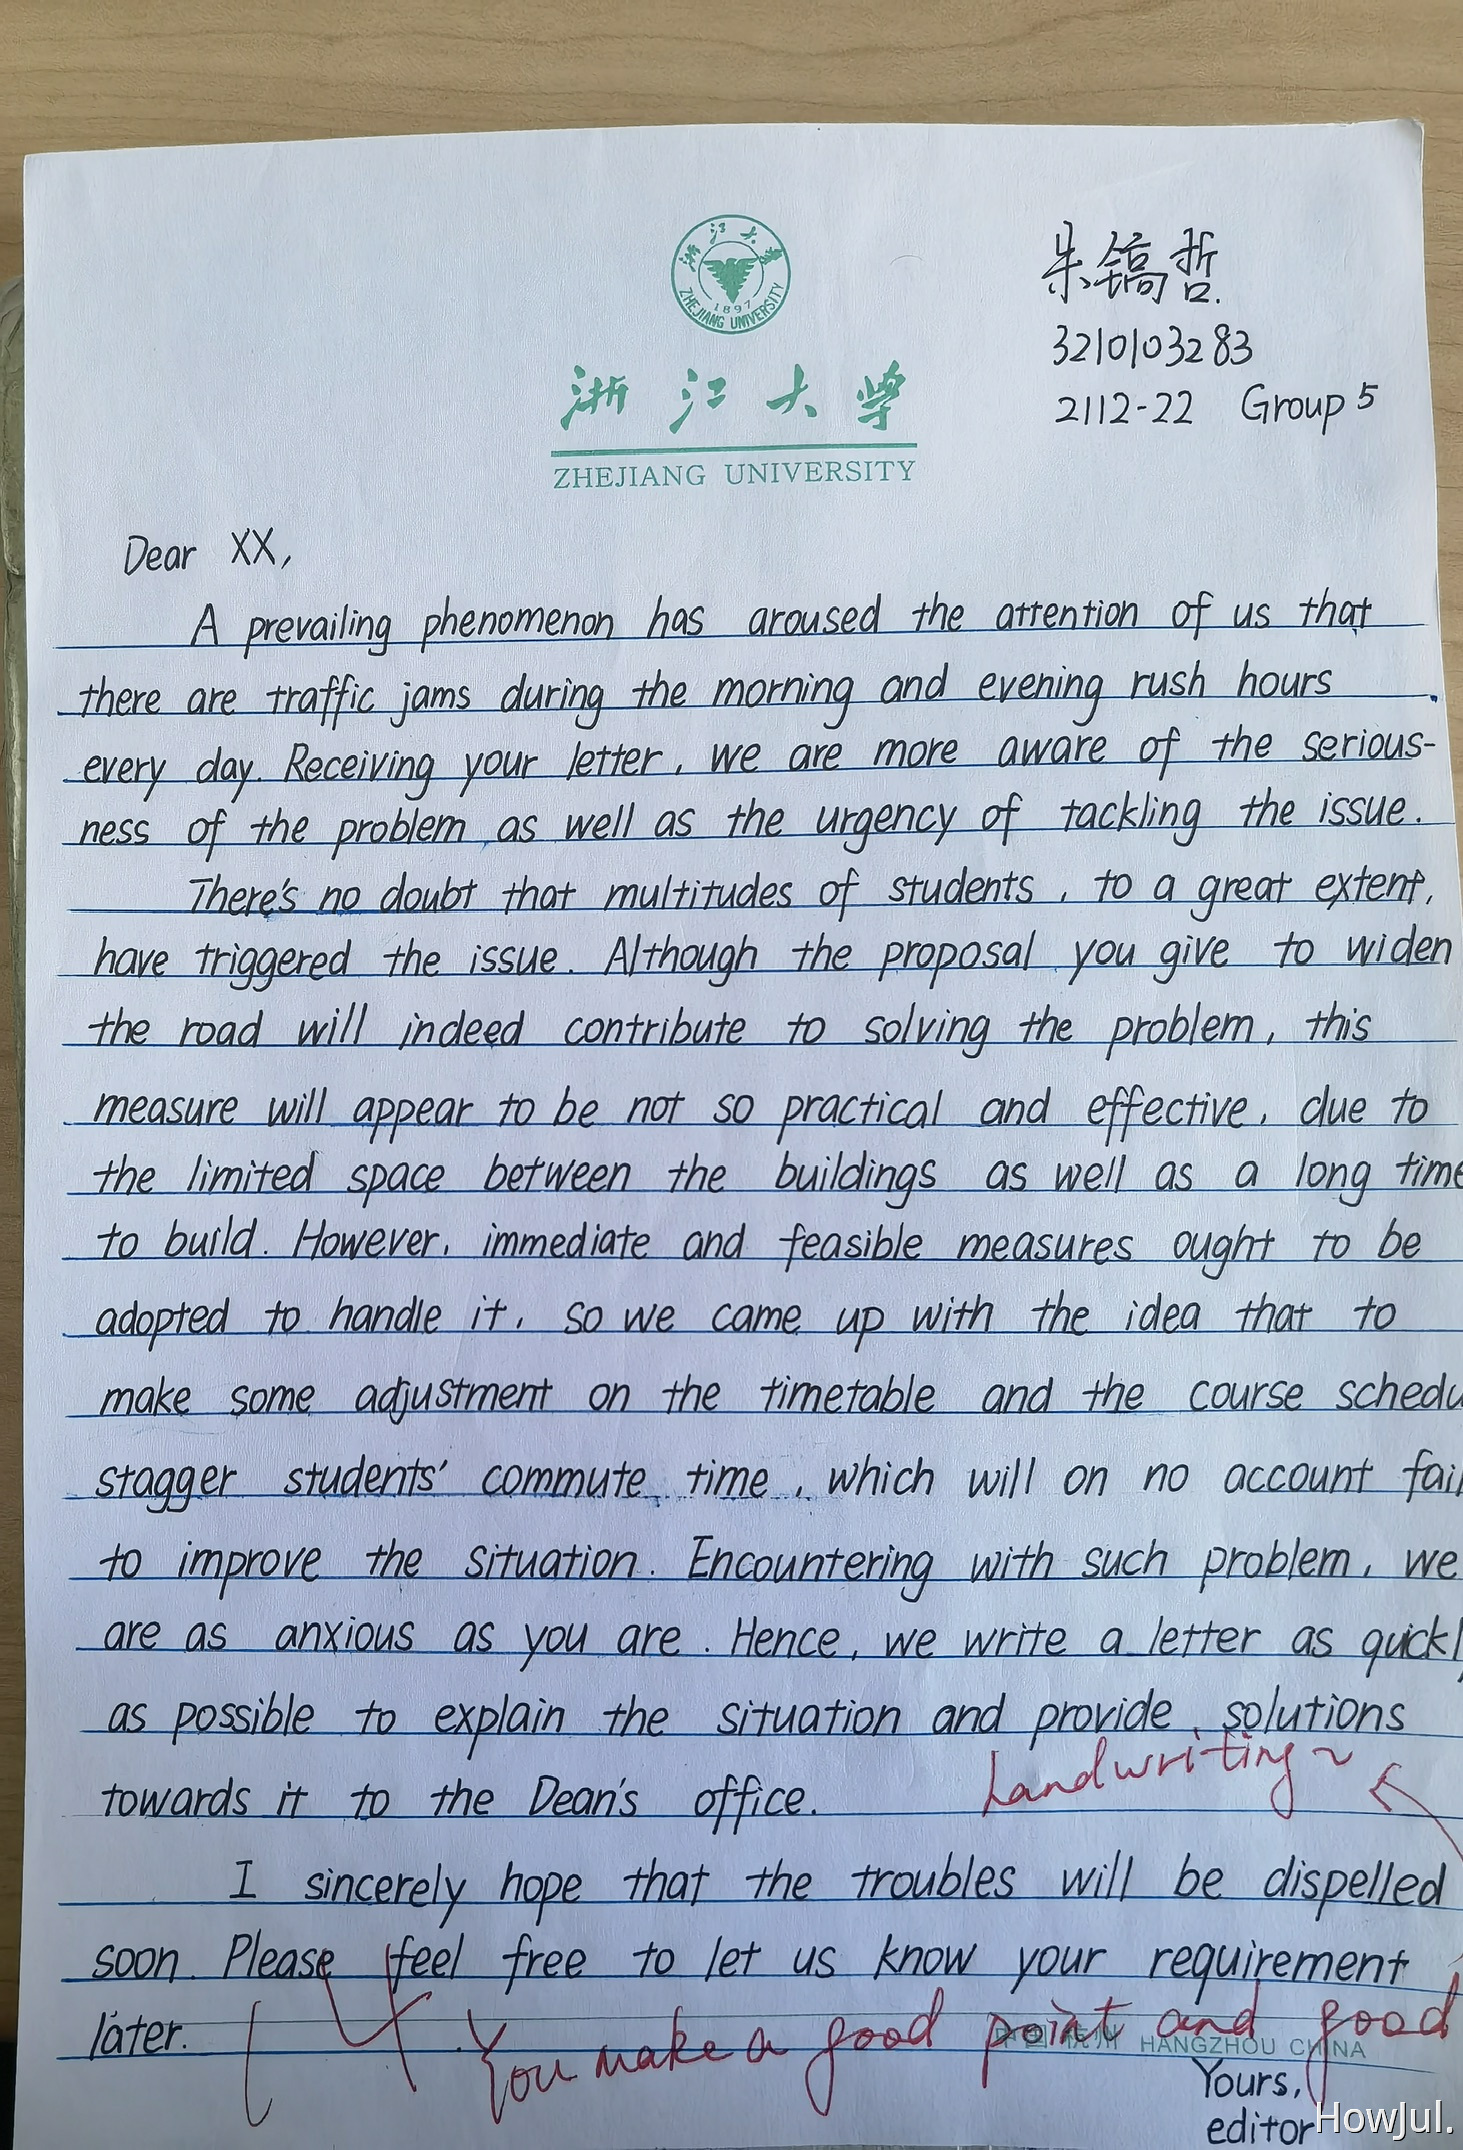 浙江大学
ZHEJIANG UNIVERSITY
1897
朱镐哲
3210103283
2112-22 Group 5
浙江大学
ZHEJIANG UNIVERSITY
Dear XX,
A prevailing phenomenon has aroused the attention of us that
there are traffic jams during the morning and evening rush hours
every day. Receiving your letter, we are more aware of the serious-
ness of the problem as well as the urgency of tackling the issue.
There's no doubt that multitudes of students, to a great extent,
have triggered the issue. Although the proposal you give to widen
the road will indeed contribute to solving the problem, this
measure will appear to be not so practical and effective, due to
the limited space between the buildings as well as a long time
to build. However, immediate and feasible measures ought to be
adopted to handle it, so we came up with the idea that to
make some adjustment on the timetable and the course schedu
stagger students' commute time, which will on no account fail
to improve the situation. Encountering with such problem, we
are as anxious as you are. Hence, we write a letter as quickly
as possible to explain the situation and provide solutions
towards it to the Dean's office.
handwriting~
I sincerely hope that the troubles will be dispelled
soon. Please feel free to let us know your requirement
later.
You make a good point and good
中国 杭州 HANGZHOU CHINA
Yours,
editor
HowJul.